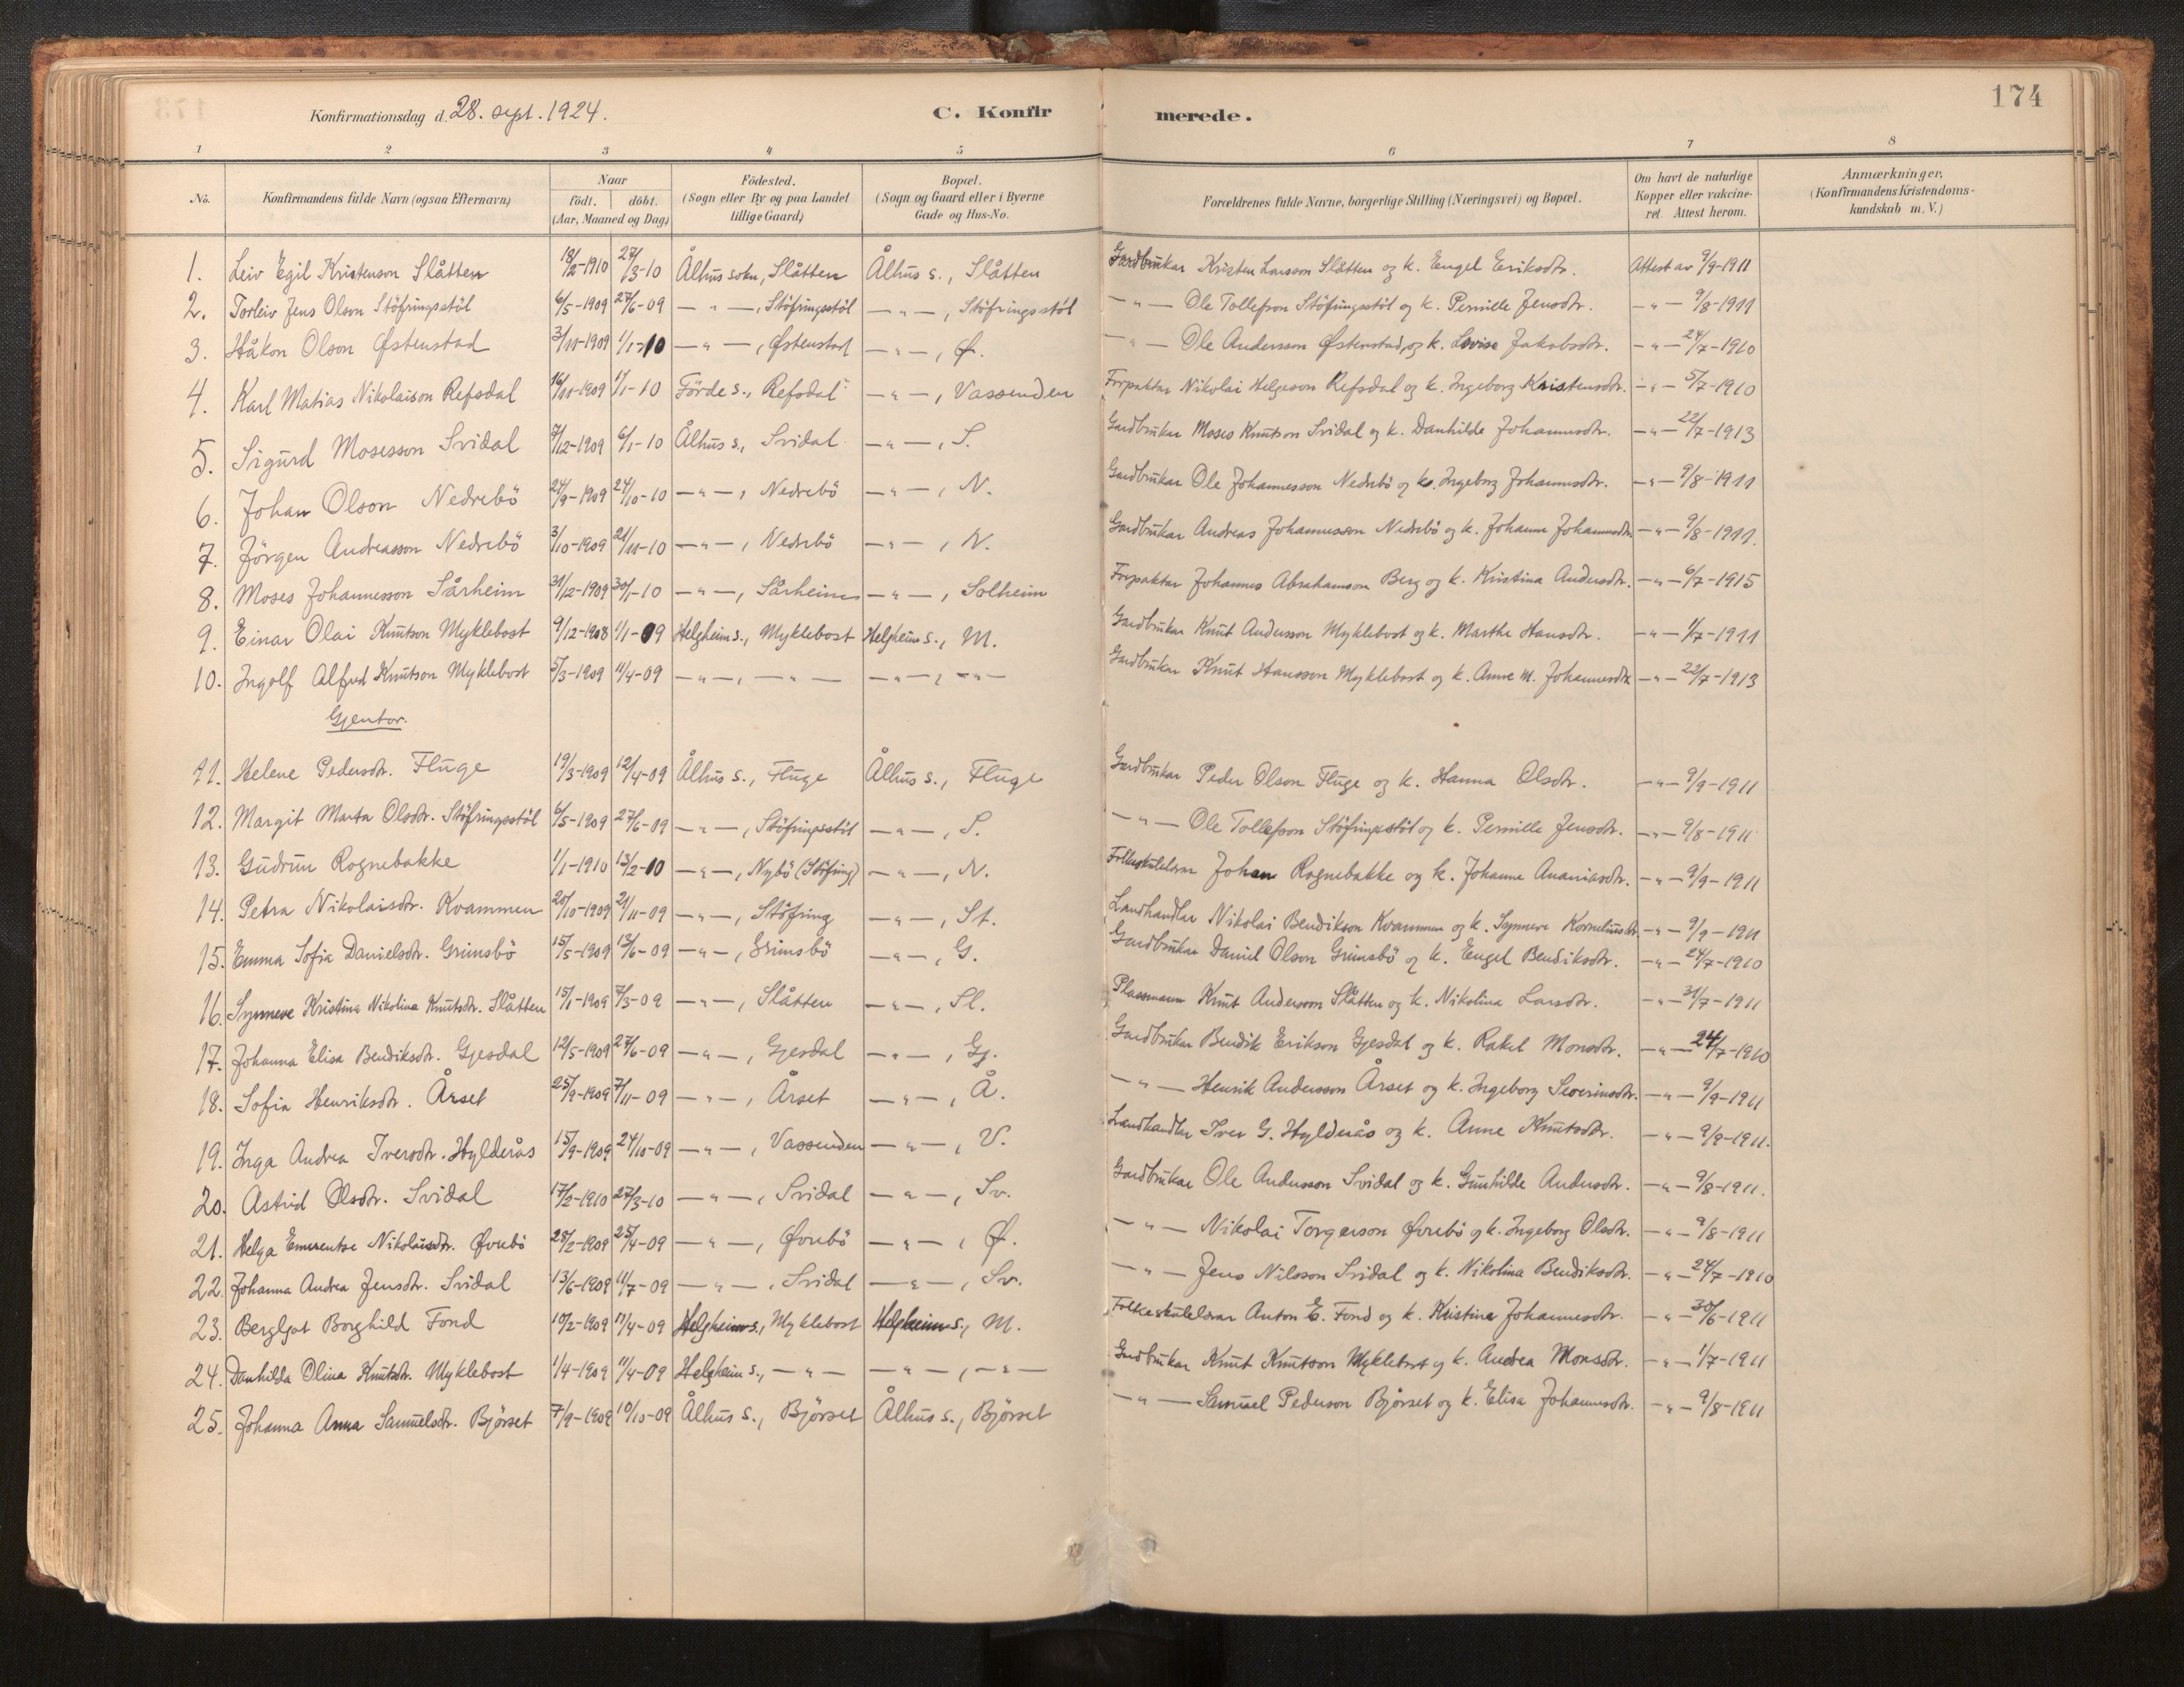 174
Konfirmationsdag d. 28. sept. 1924. C. Konfirmerede.
1 2 3 4 5 6 7 8
No. Konfirmandens fulde Navn (ogsaa Efternavn) Naar født. døbt. (Aar, Maaned og Dag) Födested. (Sogn eller By og paa Landet tillige Gaard) Bopæl. (Sogn og Gaard eller i Byerne Gade og Hus-No. Forældrenes fulde Navne, borgerlige Stilling (Næringsvei) og Bopæl. Om havt de naturlige Kopper eller vakcineret. Attest herom. Anmærkninger. (Konfirmandens Kristendomskundskab m. V.)
1. Leiv Egil Kristenson Slåtten 18/2-1910 27/3-10 Ålhus sokn, Slåtten Ålhus s., Slåtten Gardbrukar Kristen Larsson Slåtten og k. Engel Eriksdtr. Attest av 9/9-1911
2. Torleiv Jens Olson Stöfringsstöl 6/5-1909 27/6-09 — " —, Stöfringsstöl — " —, Stöfringsstöl — " — Ole Tollefson Stöfringsstöl og k. Pernille Jensdtr. — " — 9/8-1911
3. Håkon Olson Østenstad 3/11-1909 1/1-10 — " —, Østenstad — " —, Ø. — " — Ole Andersson Østenstad og k. Lovise Jakobsdtr. — " — 24/7-1910
4. Karl Matias Nikolaison Refsdal 16/11-1909 1/1-10 Förde s., Refsdal — " —, Vassenden Forpaktar Nikolai Helgeson Refsdal og k. Ingeborg Kristensdtr. — " — 5/7-1910
5. Sigurd Mosesson Svidal 7/12-1909 6/1-10 Ålhus s., Svidal — " —, S. Gardbrukar Moses Knutson Svidal og k. Danhilde Johannesdtr. — " — 22/7-1913
6. Johan Olson Nedrebö 24/9-1909 24/10-10 — " —, Nedrebö — " —, N. Gardbrukar Ole Johannesson Nedrebö og k. Ingeborg Johannesdtr. — " — 9/8-1911
7. Jörgen Andreasson Nedrebö 3/10-1909 21/11-10 — " —, Nedrebö — " —, N. Gardbrukar Andreas Johannesson Nedrebö og k. Johanne Johannesdtr. — " — 9/8-1911.
8. Moses Johannesson Sårheim 31/12-1909 30/1-10 — " —, Sårheim — " —, Solheim Forpaktar Johannes Abrahamson Berg og k. Kristina Andersdtr. — " — 6/7-1915
9. Einar Olai Knutson Myklebost 9/12-1908 1/1-09 Helgheim s., Myklebost Helgheim s., M. Gardbrukar Knut Andersson Myklebost og k. Marthe Hansdtr. — " — 1/7-1911
10. Ingolf Alfred Knutson Myklebost 5/3-1909 11/4-09 — " —, — " — — " —, — " — Gardbrukar Knut Hansson Myklebost og k. Anne M. Johannesdtr. — " — 22/7-1913
Gjentor.
11. Helene Pedersdtr. Fluge 19/3-1909 12/4-09 Ålhus s., Fluge Ålhus s., Fluge Gardbrukar Peder Olson Fluge og k. Hanna Olsdtr. — " — 9/9-1911
12. Margit Marta Olsdtr. Stöfringsstöl 6/5-1909 27/6-09 — " —, Stöfringsstöl — " —, S. — " — Ole Tollefson Stöfringsstöl og k. Pernille Jensdtr. — " — 9/8-1911
13. Gudrun Rognebakke 1/1-1910 13/2-10 — " —, Nybö (Stöfring) — " —, N. Folkeskulelærar Johan Rognebakke og k. Johanne Ananiasdtr. — " — 9/9-1911
14. Petra Nikolaisdtr. Kvammen 20/10-1909 21/11-09 — " —, Stöfring — " —, St. Landhandlar Nikolai Bendikson Kvammen og k. Synneve Korneliusdtr. — " — 9/9-1911
15. Emma Sofia Danielsdtr. Grimsbö 15/5-1909 13/6-09 — " —, Grimsbö — " —, G. Gardbrukar Daniel Olson Grimsbö og k. Engel Bendiksdtr. — " — 24/7-1910
16. Synneve Kristina Nikolina Knutsdtr. Slåtten 15/1-1909 7/3-09 — " —, Slåtten — " —, Sl. Plassmann Knut Anderson Slåtten og k. Nikolina Larsdtr. — " — 31/7-1911
17. Johanna Elisa Bendiksdtr. Gjesdal 12/5-1909 27/6-09 — " —, Gjesdal — " —, Gj. Gardbrukar Bendik Erikson Gjesdal og k. Rakel Monsdtr. — " — 24/7-1910
18. Sofia Henriksdtr. Årset 25/9-1909 7/11-09 — " —, Årset — " —, Å. — " — Henrik Andersson Årset og k. Ingeborg Severinsdtr. — " — 9/9-1911
19. Inga Andrea Iversdtr. Hylderås 15/9-1909 24/10-09 — " —, Vassenden — " —, V. Landhandlar Iver G. Hylderås og k. Anne Knutsdtr. — " — 9/9-1911.
20. Astrid Olsdtr. Svidal 17/2-1910 27/3-10 — " —, Svidal — " —, Sv. Gardbrukar Ole Andersson Svidal og k. Gunhilde Andersdtr. — " — 9/8-1911.
21. Helga Emerentse Nikolaisdtr. Øvrebö 28/2-1909 25/4-09 — " —, Øvrebö — " —, Ø. — " — Nikolai Torgerson Øvrebö og k. Ingeborg Olsdtr. — " — 9/8-1911
22. Johanna Andrea Jensdtr. Svidal 13/6-1909 11/7-09 — " —, Svidal — " —, Sv. — " — Jens Nilsson Svidal og k. Nikolina Bendiksdtr. — " — 24/7-1910
23. Bergljot Borghild Fond 10/2-1909 11/4-09 Helgheim s., Myklebost Helgheim s., M. Folkeskulelærar Anton E. Fond og k. Kristine Johannesdtr. — " — 30/6-1911
24. Danhilda Olina Knutsdtr. Myklebost 1/4-1909 11/4-09 Helgheim s., — " — — " —, — " — Gardbrukar Knut Knutson Myklebost og k. Andrea Monsdtr. — " — 1/7-1911
25. Johanna Anna Samuelsdtr. Bjørset 7/9-1909 10/10-09 Ålhus s., Bjørset Ålhus s., Bjørset — " — Samuel Pederson Bjørset og k. Elisa Johannesdtr. — " — 9/8-1911